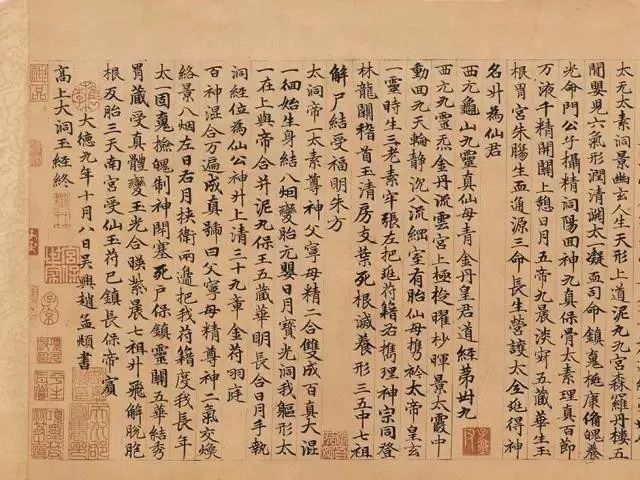 太元太素洞景幽玄人生上道泥九九宮森羅丹樓五
閒嬰兒六氣形潤清淵太一凝直司命鎮鬼梃康脩魄養
光命門公子攝精洞陽回神九真保骨太素理真百節
万液千精開關上憩日月五帝九晨淡寂五藏華生玉
根胃宮朱腸生血通源三命長生營護太全延得神
名升為仙君
西元龜山九靈真仙母青金丹皇君道經第卅九
西元九靈元金丹流雲宮上極柃曜杪暉景太霞中
動回九天輪靜沉八流網室有胎仙母攜衿太帝皇玄
一靈時生三老素牢張左把延符籍右攜理神宗同登
林龍關稽首玉清房支葉死根滅養形三五中七祖
解尸結受福明朱方
太洞帝一太素尊神父寧母精二合雙成百真大混
一徊始生身結八烟變胎元嬰日月寶光洞我軀形太
一在上與帝合并泥九保王五藏華明長合日月手執
洞經位為仙公神升上清三十九章金符羽庭
百神混合万遍成真號曰父寧母精尊神二氣交煥
絡景八烟左日右月挾衛兩邊把我符籍度我長年
太一固鬼撿魄制神閉塞死戶保鎮靈關五華結秀
胃藏受真體變玉光合映紫晨七祖升飛解脫胞
根反胎三天南宮受仙玉符已鎮長保帝賓
大德九年十月八日吳興趙孟頫書
高上大洞玉經終
神品